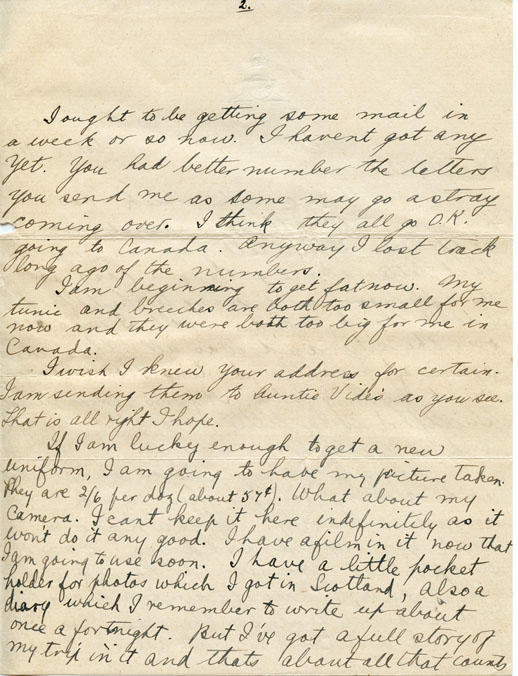 2.
I ought to be getting some mail in
a week or so now. I havent got any
yet. You had better number the letters
you send me as some may go astray
coming over. I think they all go O.K.
going to Canada. Anyway I lost track
long ago of the numbers.
I am beginning to get fat now. My
tunic and breeches are both too small for me
now and they were both too big for me in
Canada.
I wish I knew your address for certain.
I am sending them to Auntie Vide's as you see.
That is all right I hope.
If I am lucky enough to get a new
uniform, I am going to have my picture taken.
They are 2/6 per doz (about 57¢). What about my
camera. I cant keep it here indefinitely as it
won't do it any good. I have a film in it now that
I am going to use soon. I have a little pocket
holder for photos which I got in Scotland, also a
diary which I remember to write up about
once a fortnight. But I've got a full story of
my trip in it and thats about all that counts